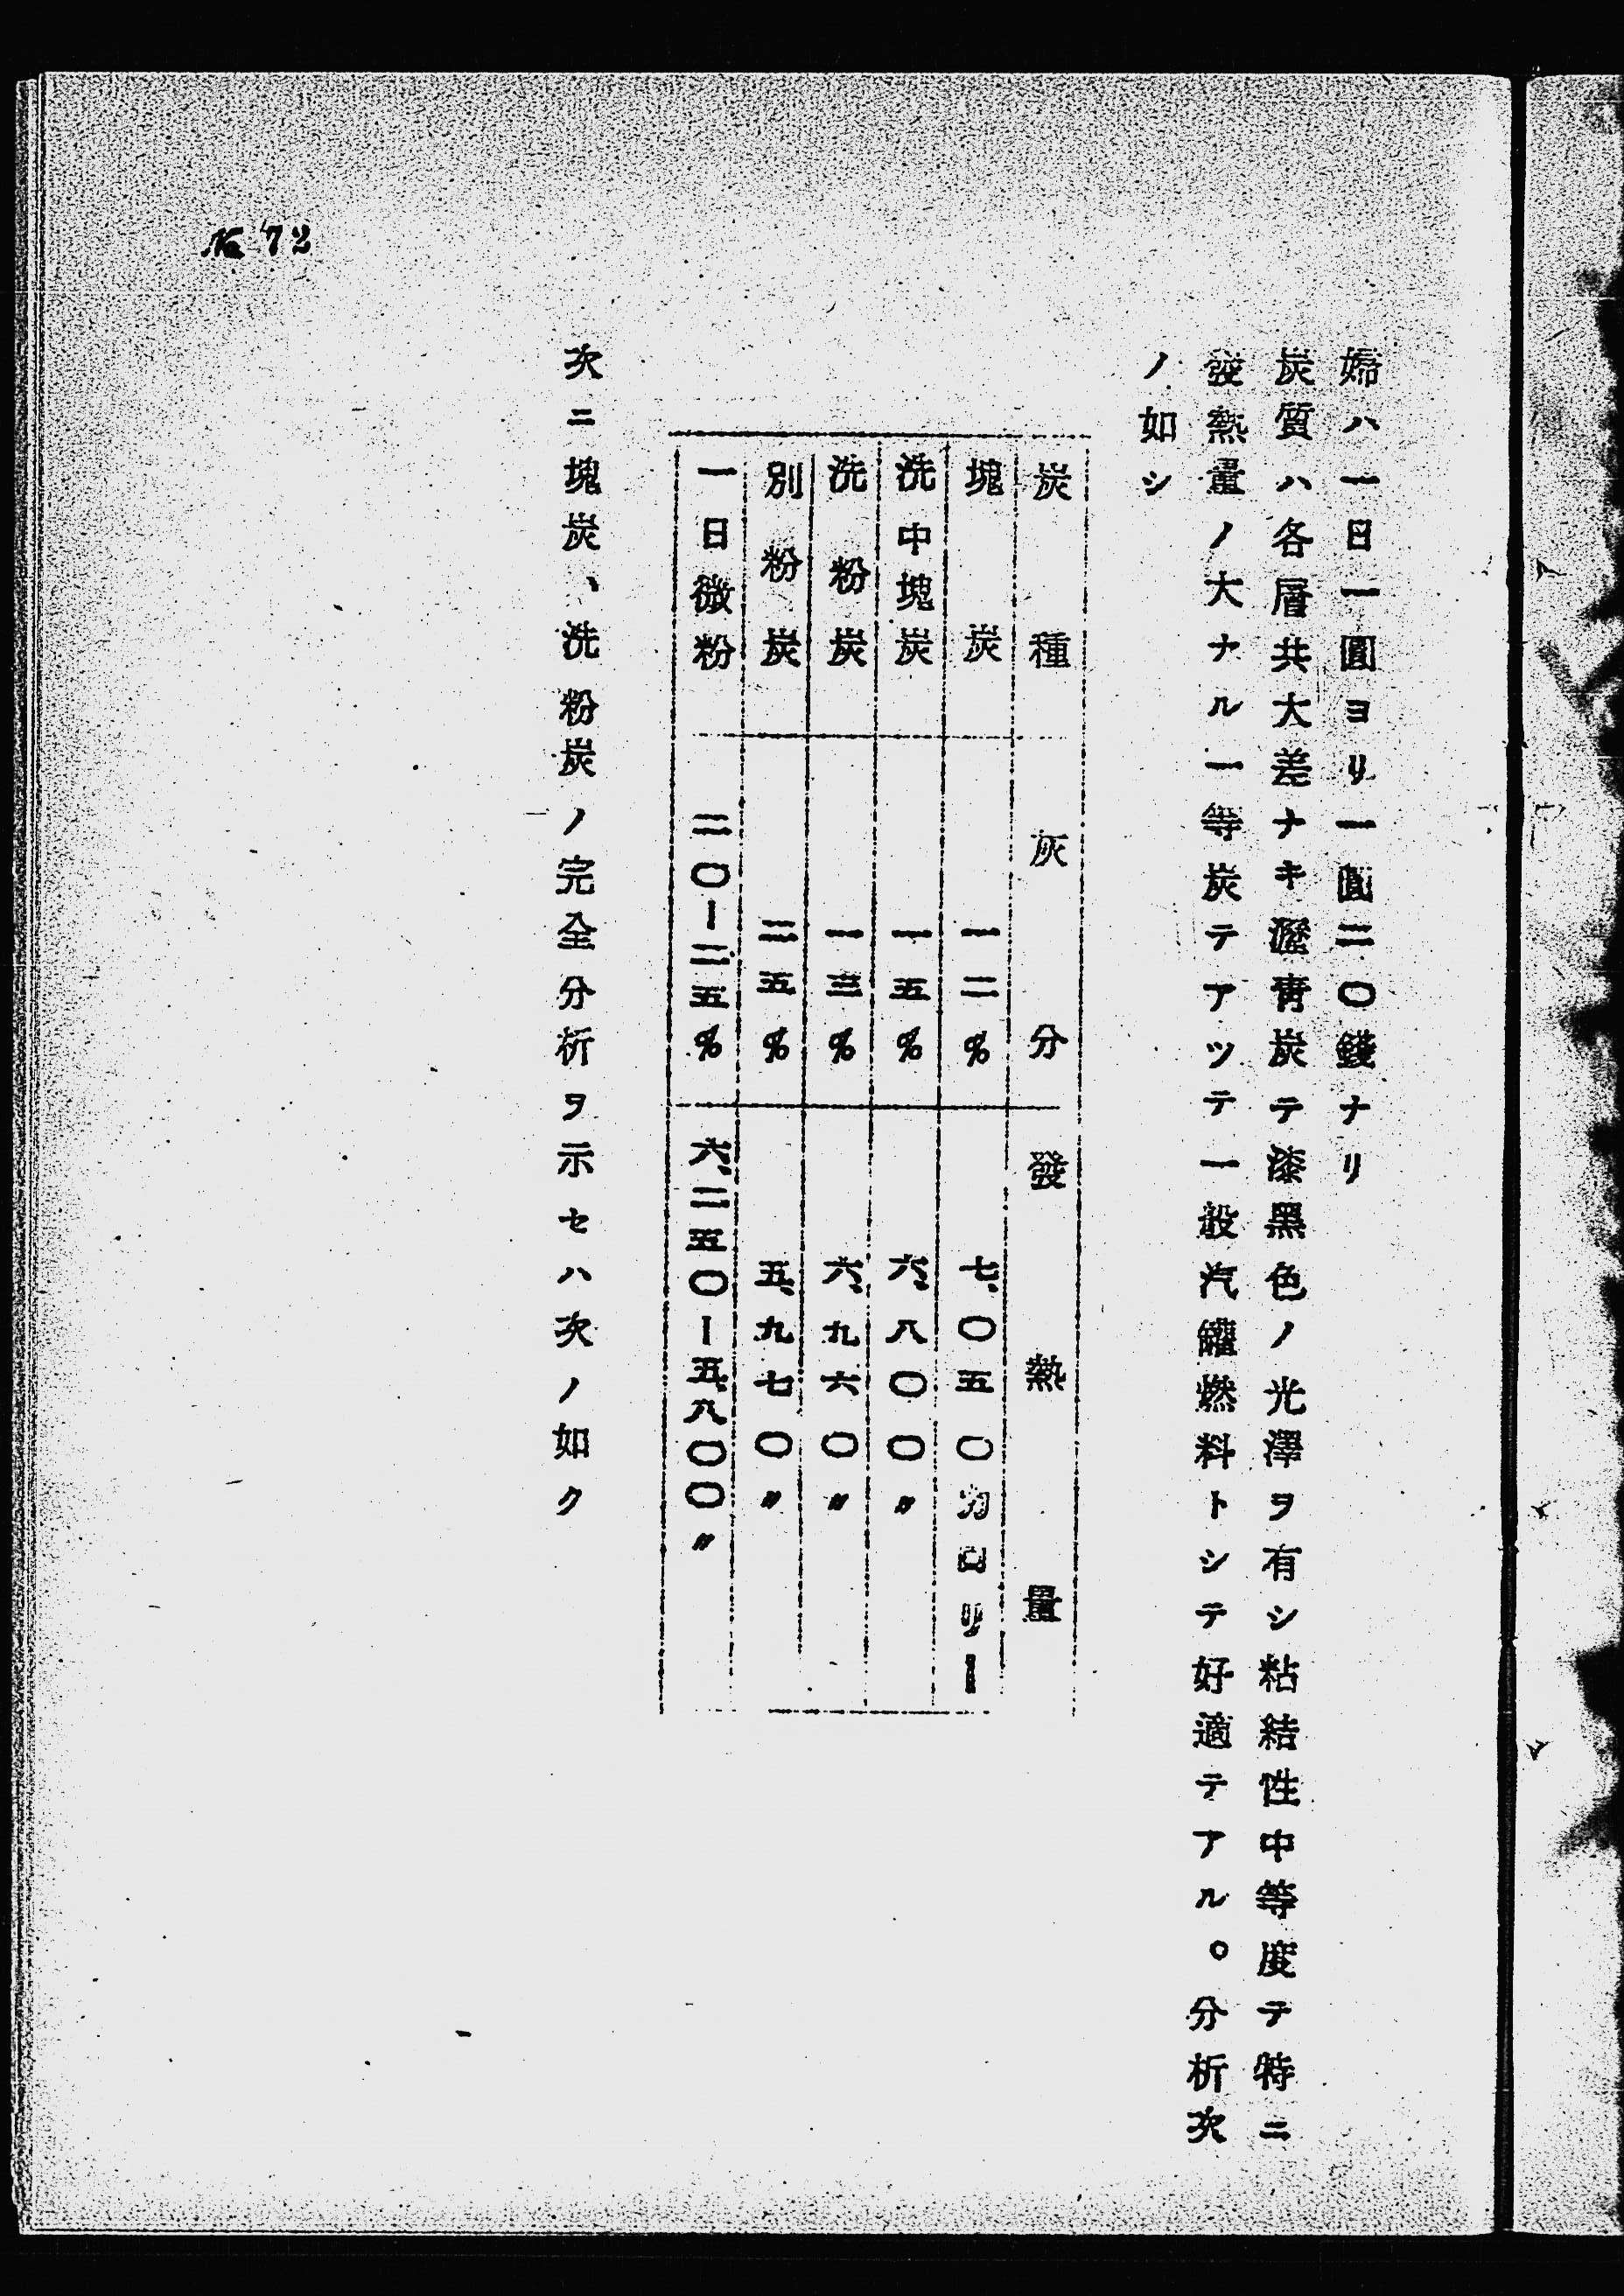 婦ハ一日一圓ヨリ一圓二〇錢ナリ
炭質ハ各層共大差ナキ瀝靑炭テ漆黑色ノ光澤ヲ有シ粘結性中等度テ特ニ
發熱量ノ大ナル一等炭テアツテ一般汽罐燃料トシテ好適テアル。分析次
ノ如シ
炭種 灰分 發熱量
塊炭 一二% 七、〇五〇カロリー
洗中塊炭 一五% 六、八〇〇〃
洗粉炭 一三% 六、九六〇〃
別粉炭 二五% 五、九七〇〃
一日微粉 二〇ー二五% 六、二五〇ー五、八〇〇〃
次ニ塊炭、洗粉炭ノ完全分析ヲ示セハ次ノ如ク
№ 72